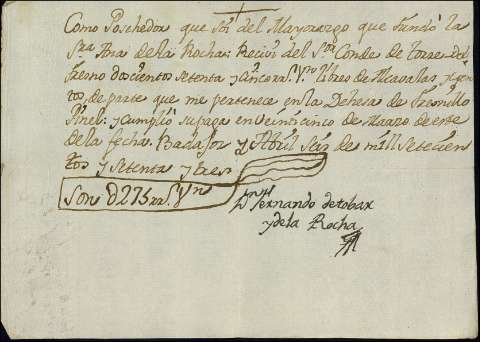 Como Poschedor que Soi del Mayorazgo que fundó la
Sra Ana de la Rocha: Recivi del Sor Conde de Torre del
fresno doscientos setenta y cinco rs. Vn libres de Alcavalas y
tos, de parte que me pertenece en la Dehesa de Fresnillo
Pinel: y cumplió su paga en Veinticinco de Marzo de este
de la fecha. Badajoz y Abril Seis de mill Setecien
tos y setenta y tres
Son D 275 rs. Vns
Dn Fernando de tobar
y de la Rocha